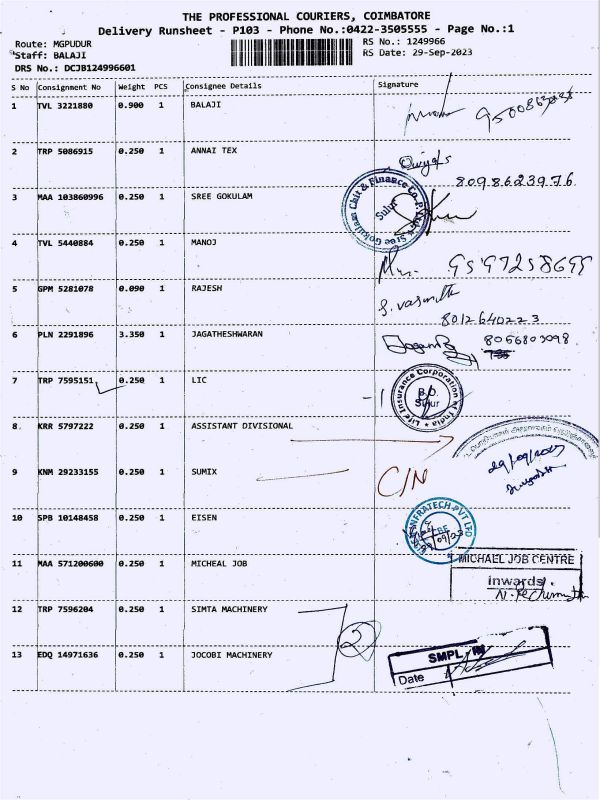 THE PROFESSIONAL COURIERS, COIMBATORE
Delivery Runsheet - P103 - Phone No.:0422-3505555 - Page No.:1
Route: MGPUDUR RS No.: 1249966
Staff: BALAJI RS Date: 29-Sep-2023
DRS No.: DCJB124996601
S No Consignment No Weight PCS Consignee Details Signature
1 TVL 3221880 0.900 1 BALAJI
2 TRP 5086915 0.250 1 ANNAI TEX
8098623976
3 MAA 103860996 0.250 1 SREE GOKULAM Sree Gokulam Chit & Finance Co. Sulur
4 TVL 5440884 0.250 1 MANOJ
9597258695
5 GPM 5281078 0.090 1 RAJESH
8012640223
6 PLN 2291896 3.350 1 JAGATHESHWARAN
7 TRP 7595151 0.250 1 LIC Life Insurance Corporation of India B.O. Sulur
8 KRR 5797222 0.250 1 ASSISTANT DIVISIONAL
29/09/2023
9 KNM 29233155 0.250 1 SUMIX C/N
10 SPB 10148458 0.250 1 EISEN INFRATECH PVT LTD
11 MAA 571200600 0.250 1 MICHEAL JOB MICHAEL JOB CENTRE
Inwards
12 TRP 7596204 0.250 1 SIMTA MACHINERY
2
13 EDQ 14971636 0.250 1 JOCOBI MACHINERY SMPL - IN
Date